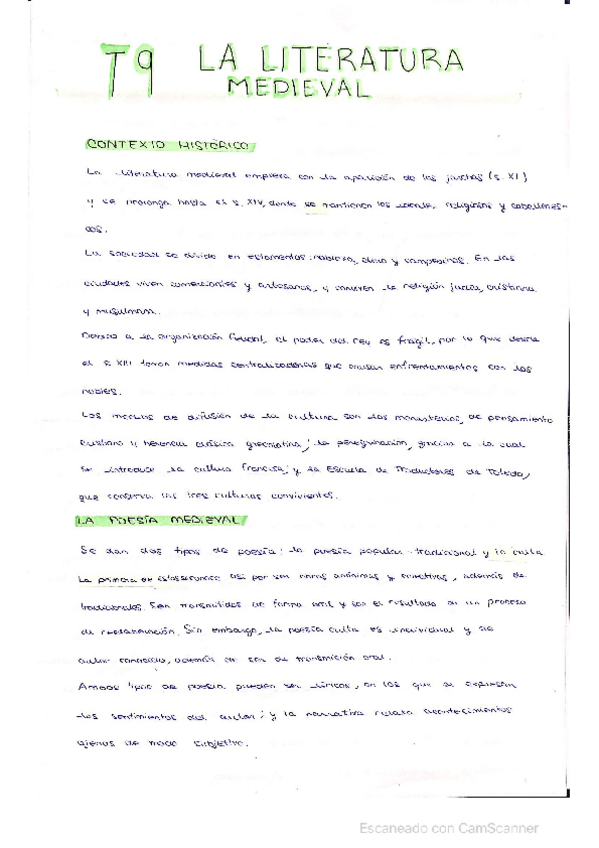 T9 LA LITERATURA
MEDIEVAL
CONTEXTO HISTÓRICO
La literatura medieval empieza con la aparición de las jarchas (s. XI)
y se prolonga hasta el s. XIV, donde se mantienen los religiosos y caballeres-
cos.
La sociedad se divide en estamentos: nobleza, clero y campesinos. En las
ciudades viven comerciantes y artesanos, y conviven la religión judía, cristiana
y musulmana.
Debido a la organización feudal, el poder del rey es frágil, por lo que desde
el s. XIII toman medidas centralizadoras que causan enfrentamientos con los
nobles.
Los medios de difusión de la cultura son los monasterios, de pensamiento
cristiano y herencia clásica; la peregrinación, gracias a la cual
se introduce la cultura francesa; y la Escuela de Traductores de Toledo,
que conserva las tres culturas convivientes.
LA POESÍA MEDIEVAL
Se dan dos tipos de poesía: la poesía popular-tradicional y la culta.
La primera es así por ser anónimas y colectivas, además de
tradicionales. Son transmitidas de forma oral y son el resultado de un proceso
de Sin embargo, la poesía culta es individual y de
autor conocido, además de ser de transmisión oral.
Ambos tipos de poesía pueden ser líricos, en los que se expresan
los sentimientos del autor; y la narrativa relata acontecimientos
ajenos de modo subjetivo.
Escaneado con CamScanner